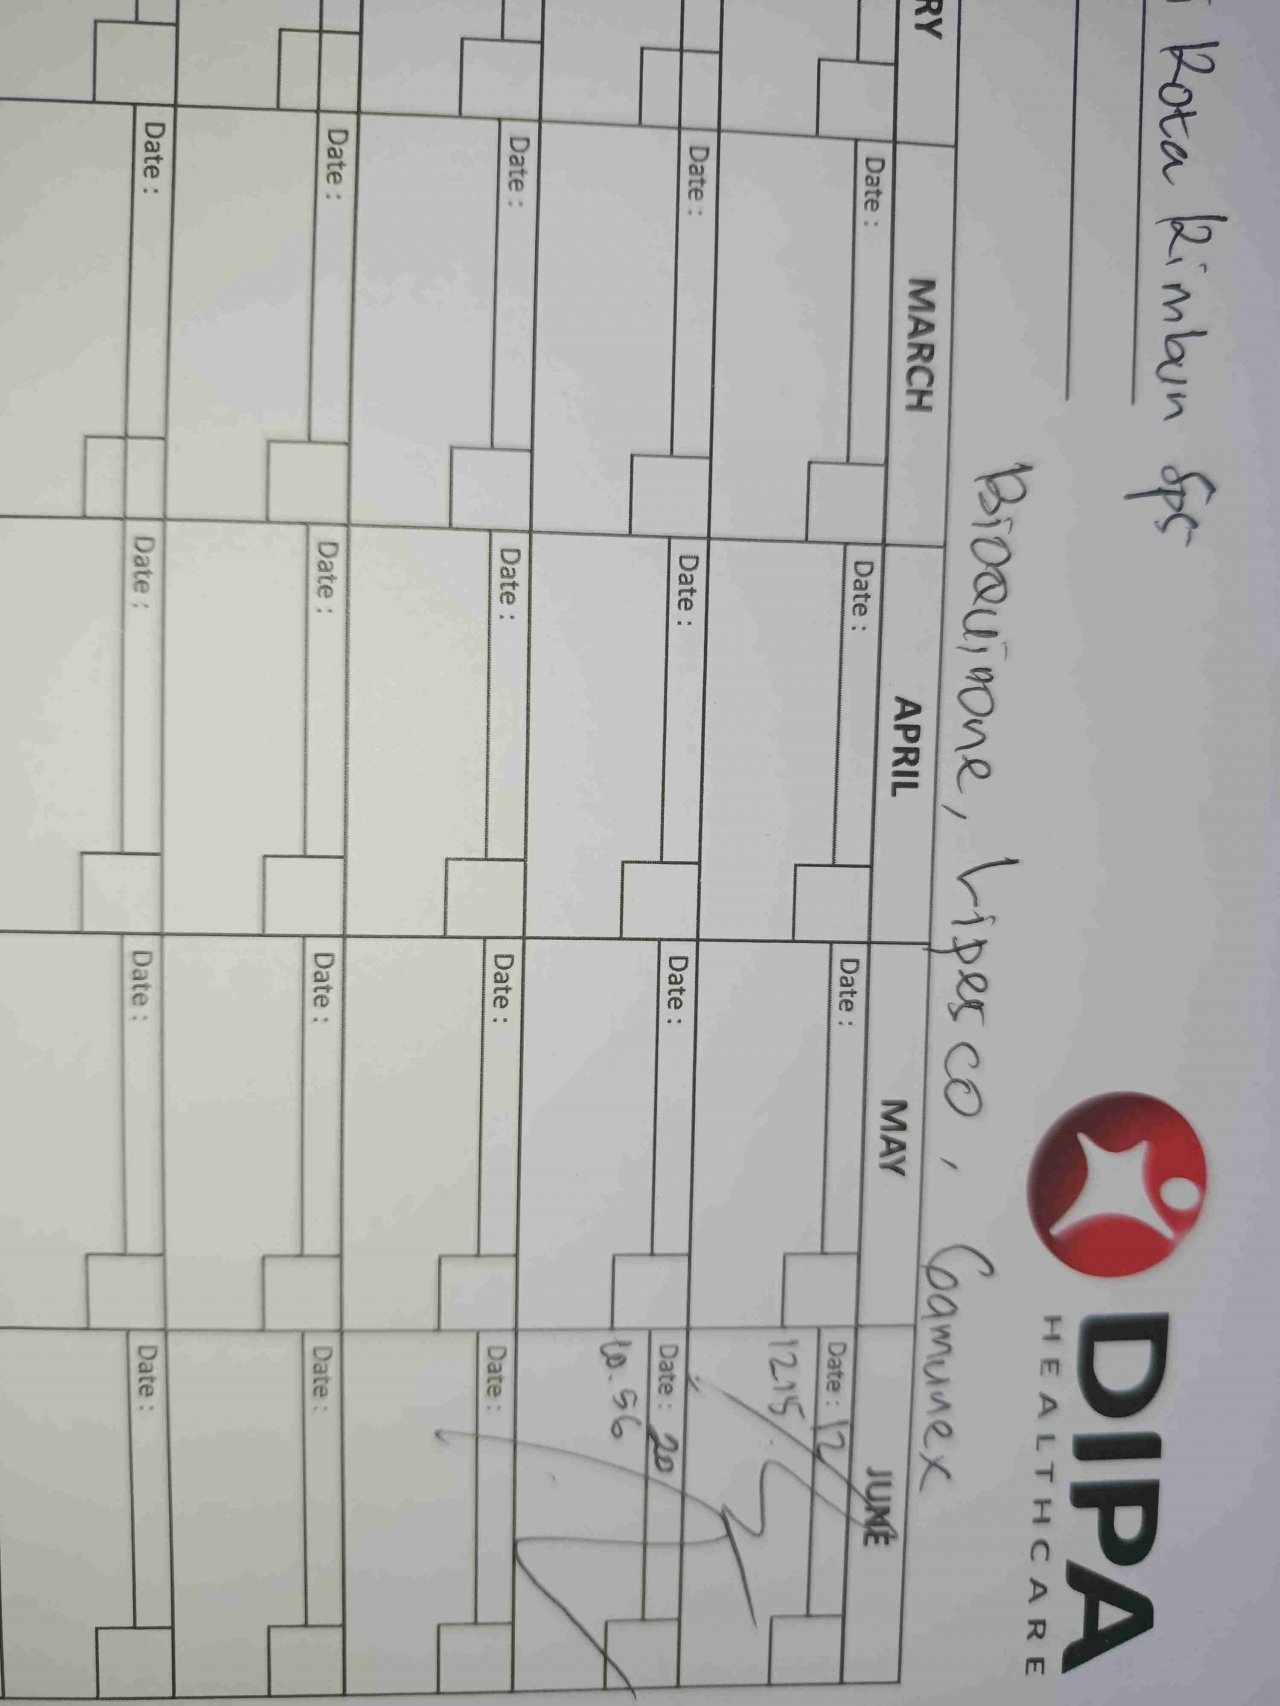 DIPA
HEALTHCARE
Rota Rimbun Sps
Bioquinone, Lipesco, Comunex
RY MARCH APRIL MAY JUNE
Date : Date : Date : Date : 12
12.15
Date : Date : Date : Date : 20
10.56
Date : Date : Date : Date :
Date : Date : Date : Date :
Date : Date : Date : Date :